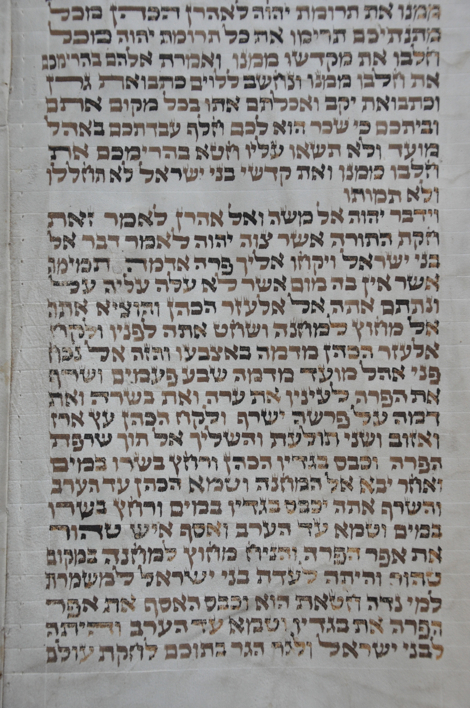 ממנו את תרומת יהוה לאהרן הכהן מכל
מתנתיכם תרימו את כל תרומת יהוה מכל
חלבו את מקדשו ממנו ואמרת אלהם בהרימכם
את חלבו ממנו ונחשב ללוים כתבואת גרן
וכתבואת יקב ואכלתם אתו בכל מקום אתם
וביתכם כי שכר הוא לכם חלף עבדתכם באהל
מועד ולא תשאו עליו חטא בהרימכם את
חלבו ממנו ואת קדשי בני ישראל לא תחללו
ולא תמותו
וידבר יהוה אל משה ואל אהרן לאמר זאת
חקת התורה אשר צוה יהוה לאמר דבר אל
בני ישראל ויקחו אליך פרה אדמה תמימה
אשר אין בה מום אשר לא עלה עליה על
ונתתם אתה אל אלעזר הכהן והוציא אתה
אל מחוץ למחנה ושחט אתה לפניו ולקח
אלעזר הכהן מדמה באצבעו והזה אל נכח
פני אהל מועד מדמה שבע פעמים ושרף
את הפרה לעיניו את ערה ואת בשרה ואת
דמה על פרשה ישרף ולקח הכהן עץ ארז
ואזוב ושני תולעת והשליך אל תוך שרפת
הפרה וכבס בגדיו הכהן ורחץ בשרו במים
ואחר יבא אל המחנה וטמא הכהן עד הערב
והשרף אתה יכבס בגדיו במים ורחץ בשרו
במים וטמא עד הערב ואסף איש טהור
את אפר הפרה והניח מחוץ למחנה במקום
טהור והיתה לעדת בני ישראל למשמרת
למי נדה חטאת הוא וכבס האסף את אפר
הפרה את בגדיו וטמא עד הערב והיתה
לבני ישראל ולגר הגר בתוכם לחקת עולם